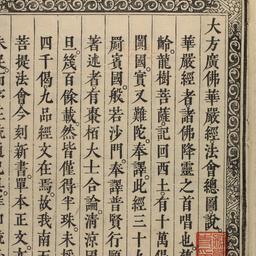 大方廣佛華嚴經法會總圖說
華嚴經者諸佛降靈之首唱也
齡龍樹菩薩記回西土有十萬偈
闐國實叉難陀奉譯此經三十
罽賓國般若沙門奉譯普賢行願
著述者有棗栢大士合論清涼國
旦幾百餘載然皆僅得半珠未
四千偈九品經文在焉故我南
菩提法會今刻新書單本正文